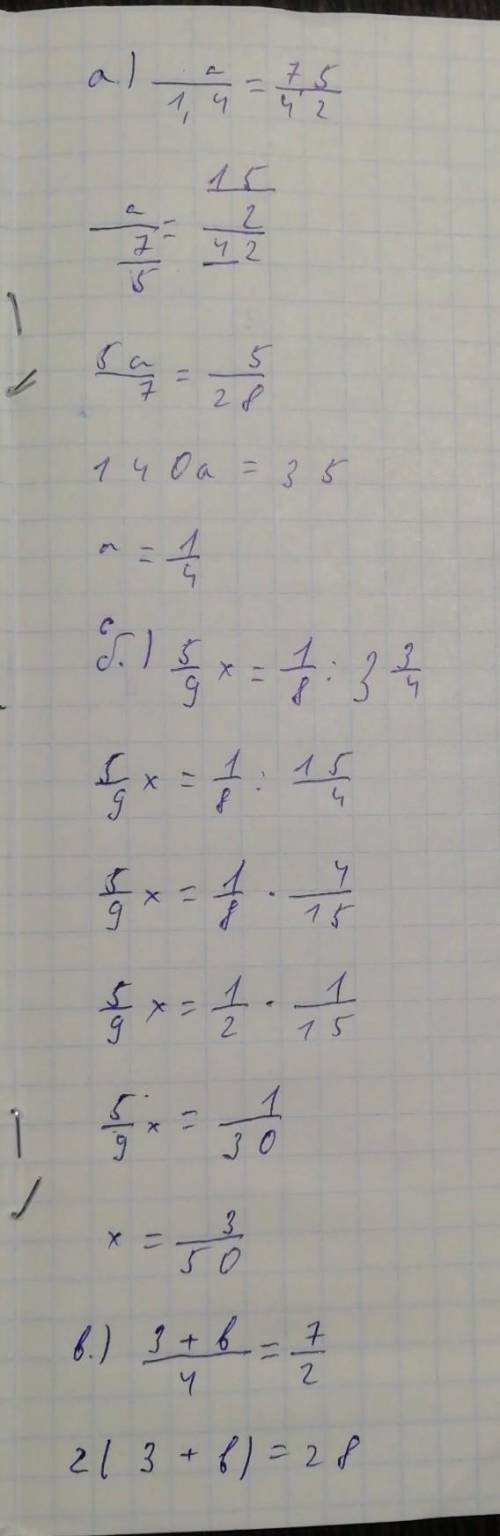 а.) a/1,4 = 7,5/42
a/(7/5) = (15/2)/42
5a/7 = 5/28
140a = 35
a = 1/4
б.) 5/9 x = 1/8 : 3 3/4
5/9 x = 1/8 : 15/4
5/9 x = 1/8 · 4/15
5/9 x = 1/2 · 1/15
5/9 x = 1/30
x = 3/50
в.) (3 + в)/4 = 7/2
2(3 + в) = 28